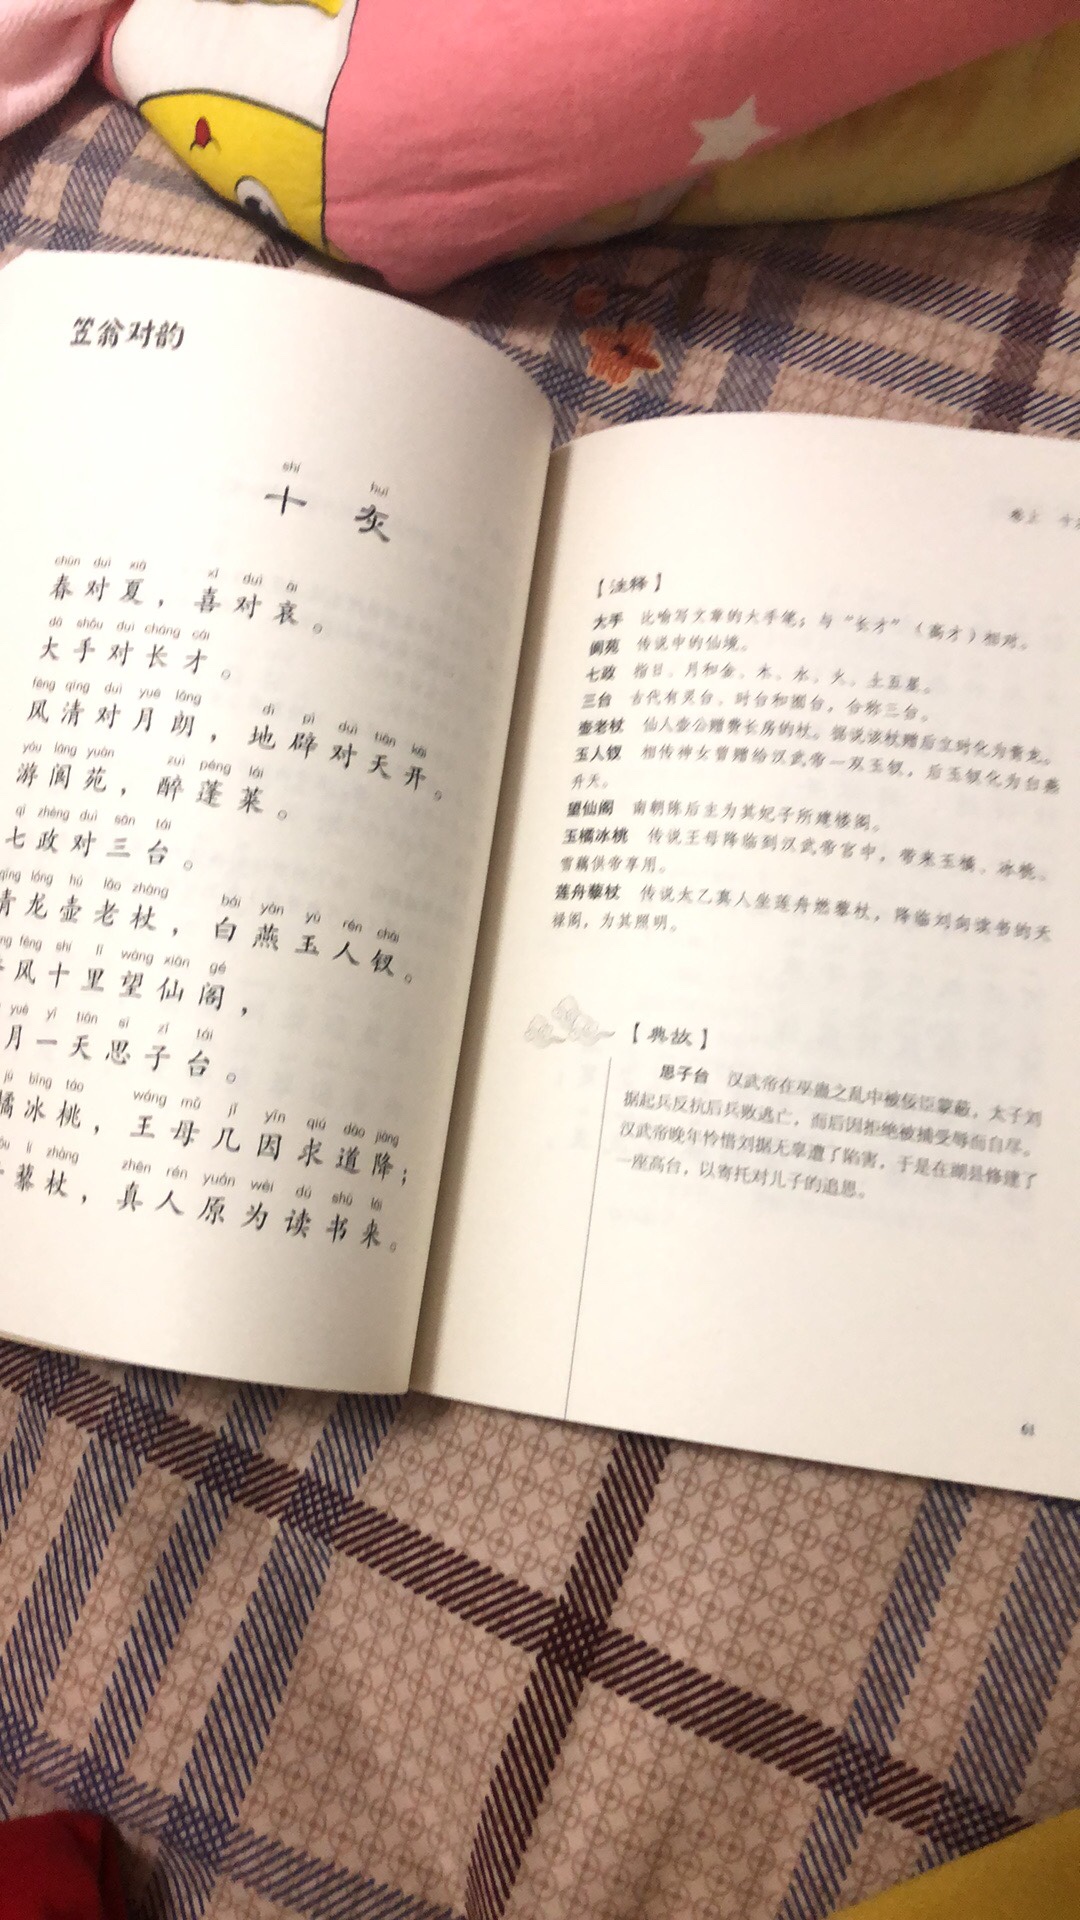 笠翁对韵
shí huī
十 灰
chūn duì xià xǐ duì āi
春对夏，喜对哀。
dà shǒu duì cháng cái
大手对长才。
fēng qīng duì yuè lǎng dì pì duì tiān kāi
风清对月朗，地辟对天开。
yóu làng yuàn zuì péng lái
游阆苑，醉蓬莱。
qī zhèng duì sān tái
七政对三台。
qīng lóng hú lǎo zhàng bái yàn yù rén chāi
青龙壶老杖，白燕玉人钗。
fēng shí lǐ wàng xiān gé
风十里望仙阁，
yuè yì tiān sī zǐ tái
月一天思子台。
jú bīng táo wáng mǔ jǐ yīn qiú dào jiàng
橘冰桃，王母几因求道降；
lí zhàng zhēn rén yuán wèi dú shū lái
藜杖，真人原为读书来。
卷上
【注释】
大手 比喻写文章的大手笔；与“长才”（高才）相对。
阆苑 传说中的仙境。
七政 指日、月和金、木、水、火、土五星。
三台 古代有灵台、时台和囿台，合称三台。
壶老杖 仙人壶公赠费长房的杖。据说该杖赠后立时化为青龙。
玉人钗 相传神女曾赠给汉武帝一双玉钗，后玉钗化为白燕
升天。
望仙阁 南朝陈后主为其妃子所建楼阁。
玉橘冰桃 传说王母降临到汉武帝宫中，带来玉橘、冰桃、
雪藕供帝享用。
莲舟藜杖 传说太乙真人坐莲舟燃藜杖，降临刘向读书的天
禄阁，为其照明。
【典故】
思子台 汉武帝在巫蛊之乱中被佞臣蒙蔽，太子刘
据起兵反抗后兵败逃亡，而后因拒绝被捕受辱而自尽。
汉武帝晚年怜惜刘据无辜遭了陷害，于是在湖县修建了
一座高台，以寄托对儿子的追思。
61